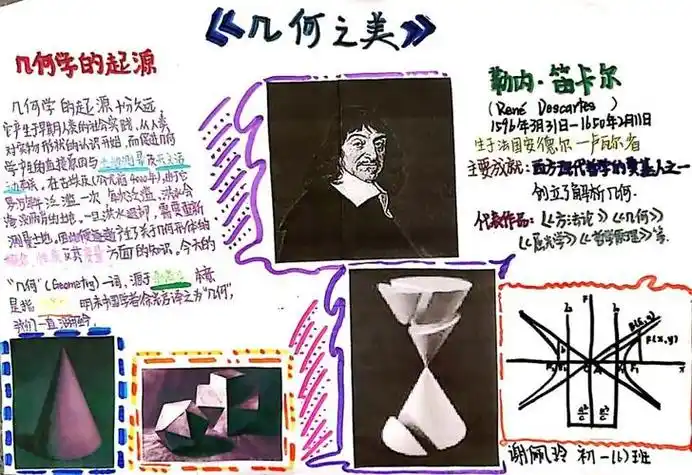 《几何之美》
几何学的起源
几何学的起源十分久远,
它产生于早期人类的社会实践,从人类
对实物形状的认识开始,而促进几何
学产生的直接原因与土地测量及天文活
动有关。在古埃及
易河每年泛滥一次
淹没两岸的土地。一旦洪水退却,需要重新
测量土地。因此便逐渐产生了关于几何形体的
方面的知识。今天的
"几何"(Geometry)一词,源于
是指 明末中国学者徐光启译之为"几何",
我们一直沿用
勒内·笛卡尔
(René Descartes)
1596年3月31日—1650年2月11日
生于法国安德尔—卢瓦尔省
主要成就:西方现代哲学的奠基人之一
创立了解析几何.
代表作品:《方法论》《几何》
《屈光学》《哲学原理》等.
谢佩玲 初一(6)班